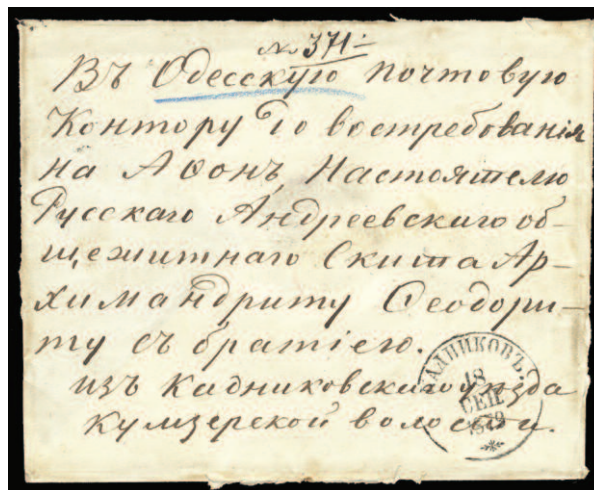 № 371
Въ Одесскую почтовую
Контору До востребованія
на Аѳонъ, Настоятелю
Русскаго Андреевскаго об-
щежитнаго Скита Ар-
химандриту Ѳеодори-
ту съ братіею.
изъ Кадниковскаго уѣзда
Кумзерской волости.
КАДНИКОВЪ.
18
СЕН.
1879